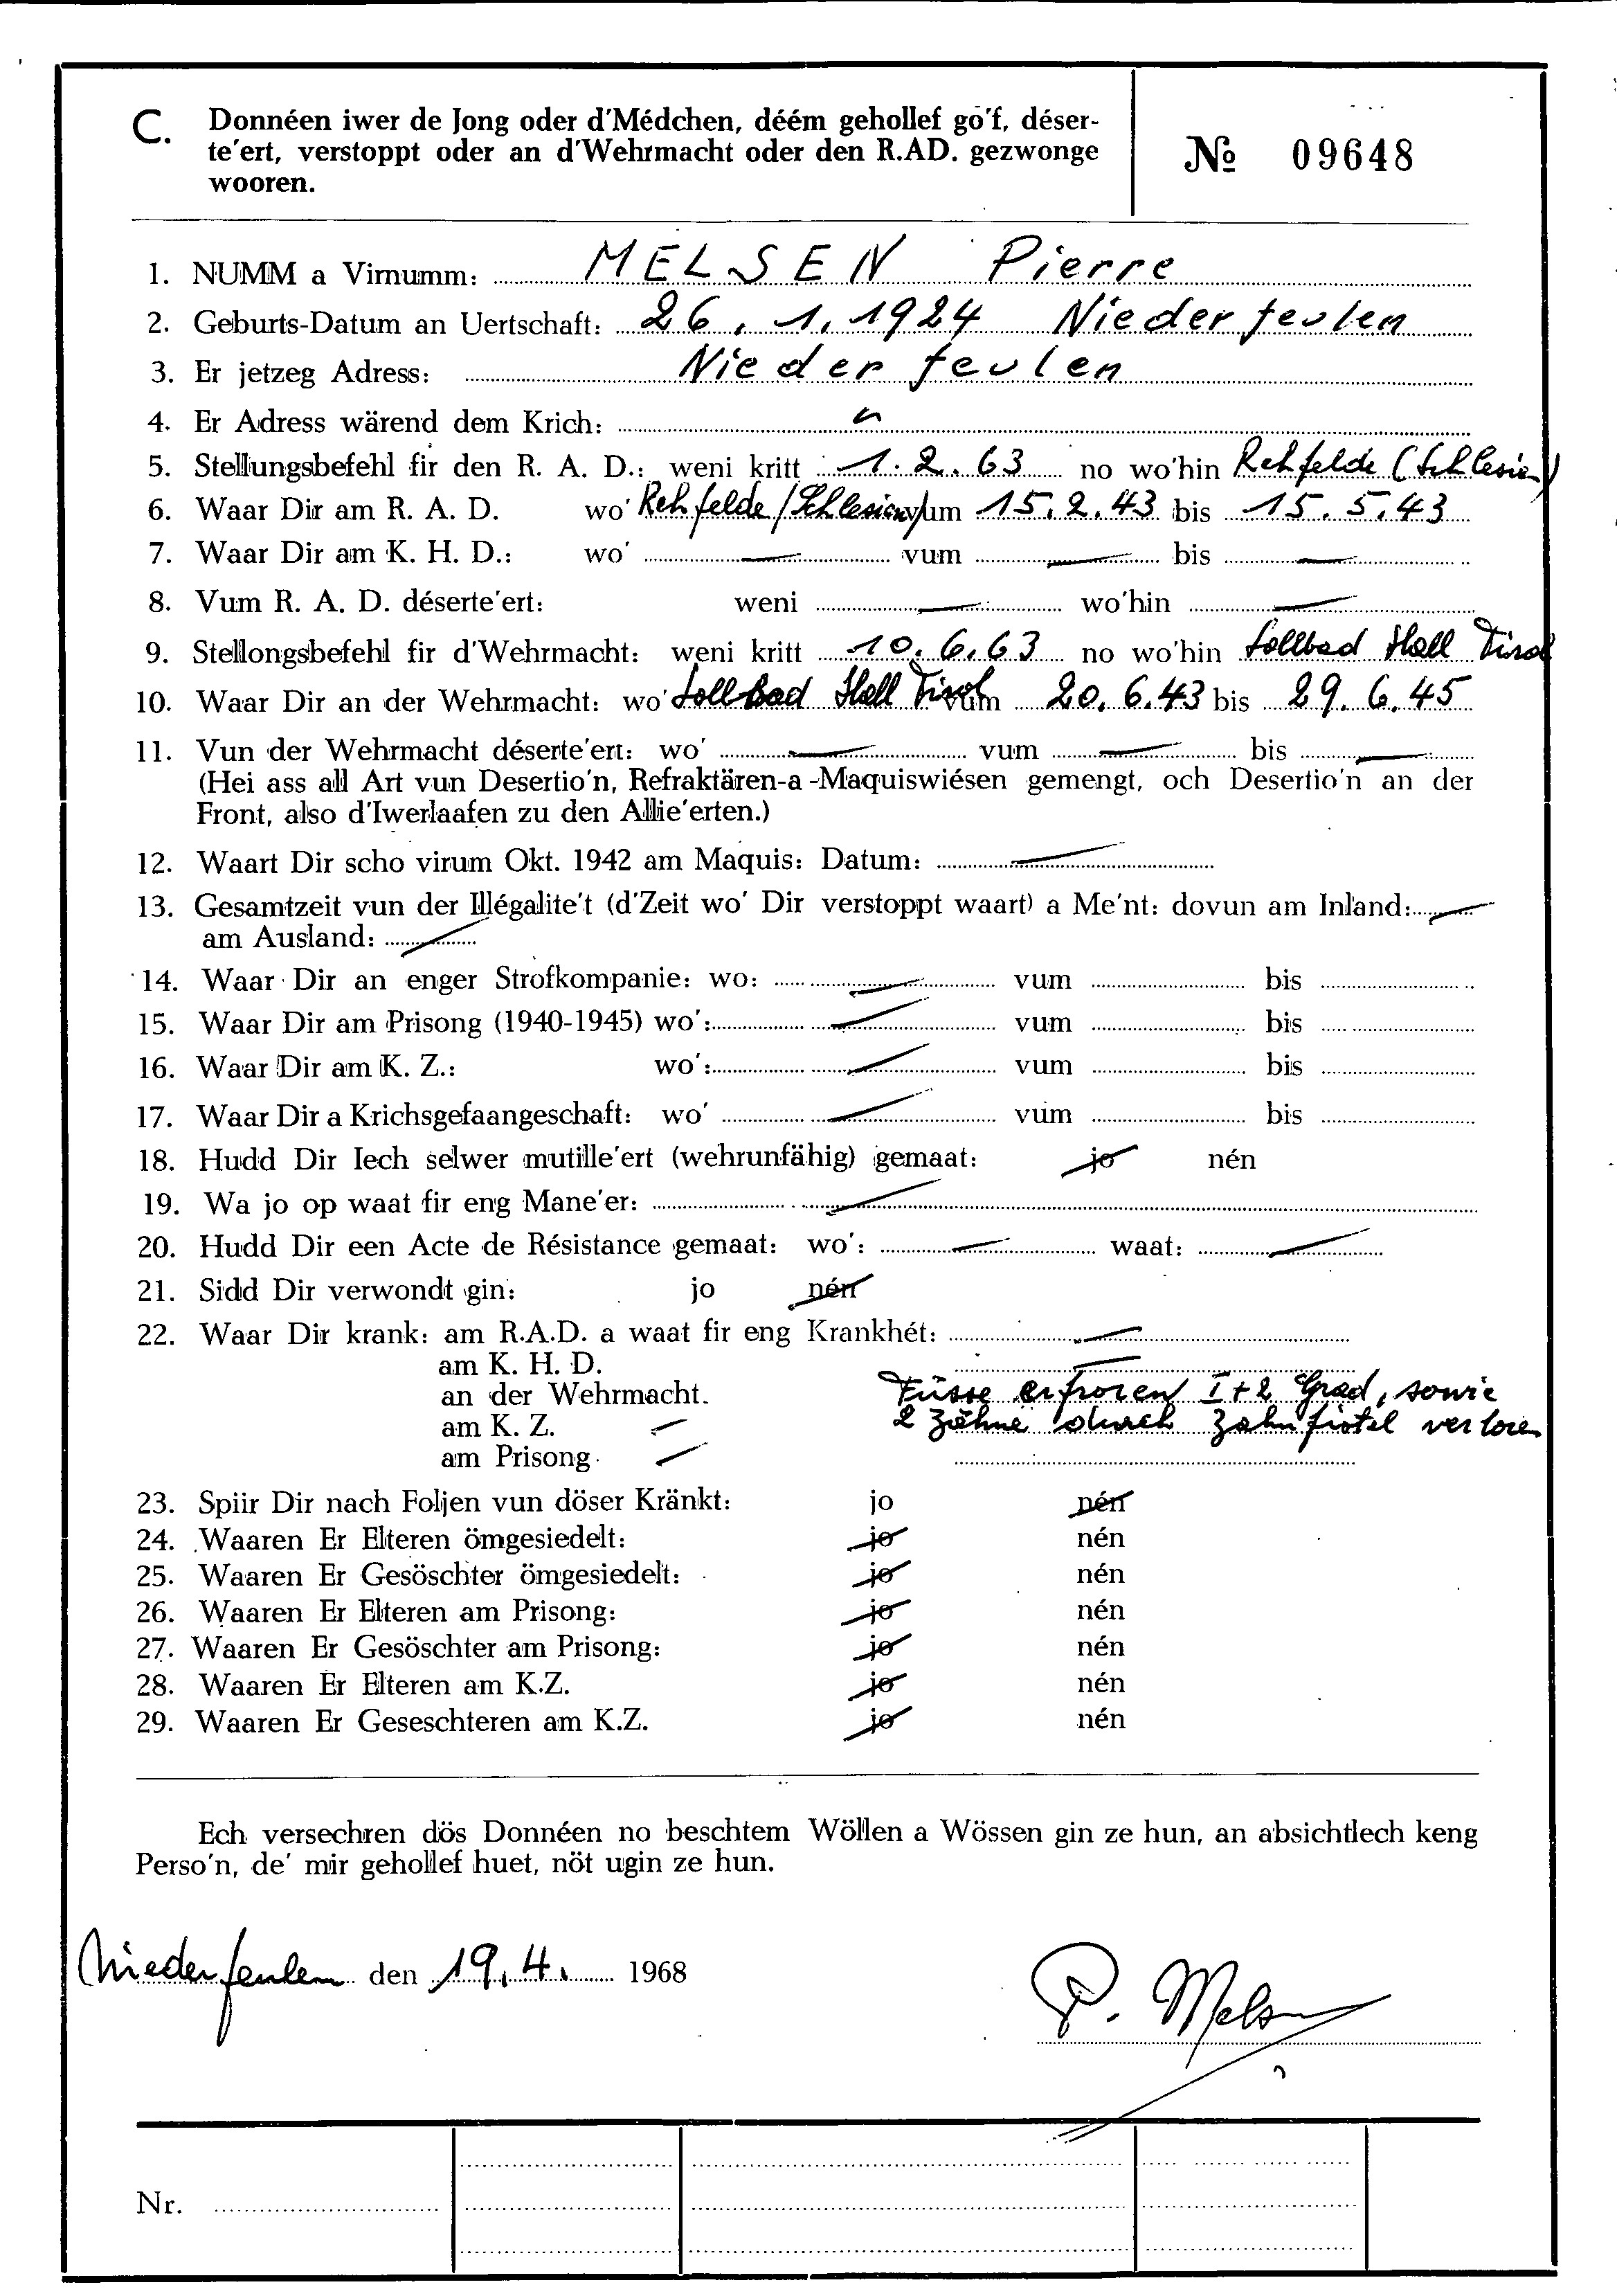 C. Donnéen iwer de Jong oder d'Médchen, déém gehollef go'f, déser-
te'ert, verstoppt oder an d'Wehrmacht oder den R.AD. gezwonge
wooren.
№ 09648
1. NUMM a Virnumm: MELSEN Pierre
2. Geburts-Datum an Uertschaft: 26. 1. 1924 Niederfeulen
3. Er jetzeg Adress: Niederfeulen
4. Er Adress wärend dem Krich: "
5. Stellungsbefehl fir den R. A. D.: weni kritt 1. 2. 63 no wo'hin Rehfelde (Schlesien)
6. Waar Dir am R. A. D. wo' Rehfelde (Schlesien) vum 15. 2. 43 bis 15. 5. 43
7. Waar Dir am K. H. D.: wo' — vum — bis —
8. Vum R. A. D. déserte'ert: weni — wo'hin —
9. Stellongsbefehl fir d'Wehrmacht: weni kritt 10. 6. 63 no wo'hin Sollbad Hall Tirol
10. Waar Dir an der Wehrmacht: wo' Sollbad Hall Tirol vum 20. 6. 43 bis 29. 6. 45
11. Vun der Wehrmacht déserte'ert: wo' — vum — bis —
(Hei ass all Art vun Desertio'n, Refraktären-a-Maquiswiésen gemengt, och Desertio'n an der
Front, also d'Iwerlaafen zu den Allie'erten.)
12. Waart Dir scho virum Okt. 1942 am Maquis: Datum: —
13. Gesamtzeit vun der Illégalite't (d'Zeit wo' Dir verstoppt waart) a Me'nt: dovun am Inland: —
am Ausland: —
14. Waar Dir an enger Strofkompanie: wo: — vum bis
15. Waar Dir am Prisong (1940-1945) wo': — vum bis
16. Waar Dir am K. Z.: wo': — vum bis
17. Waar Dir a Krichsgefaangeschaft: wo' — vum bis
18. Hudd Dir Iech selwer mutille'ert (wehrunfähig) gemaat: jo nén
19. Wa jo op waat fir eng Mane'er: —
20. Hudd Dir een Acte de Résistance gemaat: wo': — waat: —
21. Sidd Dir verwondt gin: jo nén
22. Waar Dir krank: am R.A.D. a waat fir eng Krankhét: —
am K. H. D. —
an der Wehrmacht. Füsse erfroren I + 2 Grad, sowie
am K. Z. — 2 Zähne durch Zahnfistel verloren
am Prisong —
23. Spiir Dir nach Foljen vun döser Kränkt: jo nén
24. Waaren Er Elteren ömgesiedelt: jo nén
25. Waaren Er Gesöschter ömgesiedelt: jo nén
26. Waaren Er Elteren am Prisong: jo nén
27. Waaren Er Gesöschter am Prisong: jo nén
28. Waaren Er Elteren am K.Z. jo nén
29. Waaren Er Geseschteren am K.Z. jo nén
Ech versechren dös Donnéen no beschtem Wöllen a Wössen gin ze hun, an absichtlech keng
Perso'n, de' mir gehollef huet, nöt ugin ze hun.
Niederfeulen den 19. 4. 1968
P. Melsen
Nr.